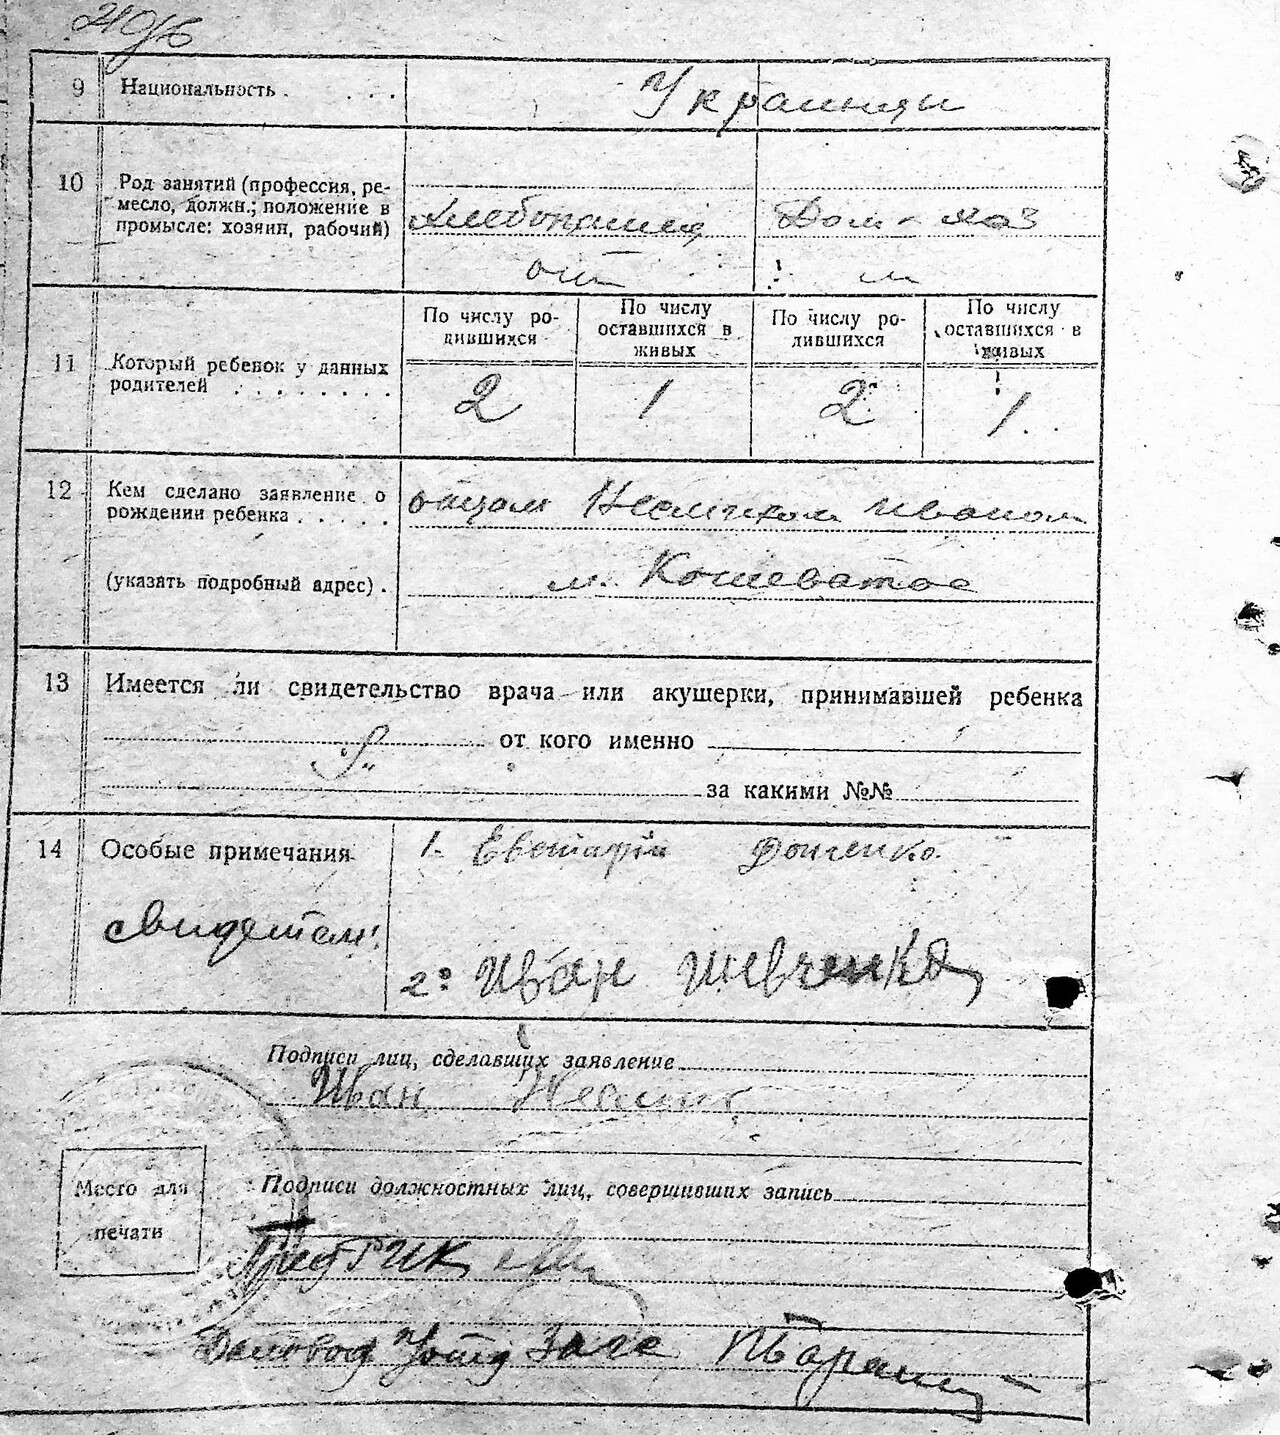 9 Национальность . . . . Украинцы
10 Род занятий (профессия, ре-
месло, должн.; положение в
промысле: хозяин, рабочий)
Хлебопашец Дом-хоз
11 Который ребенок у данных
родителей . . . . . . . .
По числу ро-
дившихся
По числу
оставшихся в
живых
По числу ро-
дившихся
По числу
оставшихся в
живых
2 1 2 1
12 Кем сделано заявление о
рождении ребенка . . . . .
отцом Иваном
(указать подробный адрес) .
м. Кошеватое
13 Имеется ли свидетельство врача или акушерки, принимавшей ребенка
от кого именно
за какими №№
14 Особые примечания
свидетели:
1. Евстафий Донченко.
2: Иван Шевченко
Подписи лиц, сделавших заявление
Иван
Подписи должностных лиц, совершивших запись
Место для
печати
Пред РИК
Деловод Загс